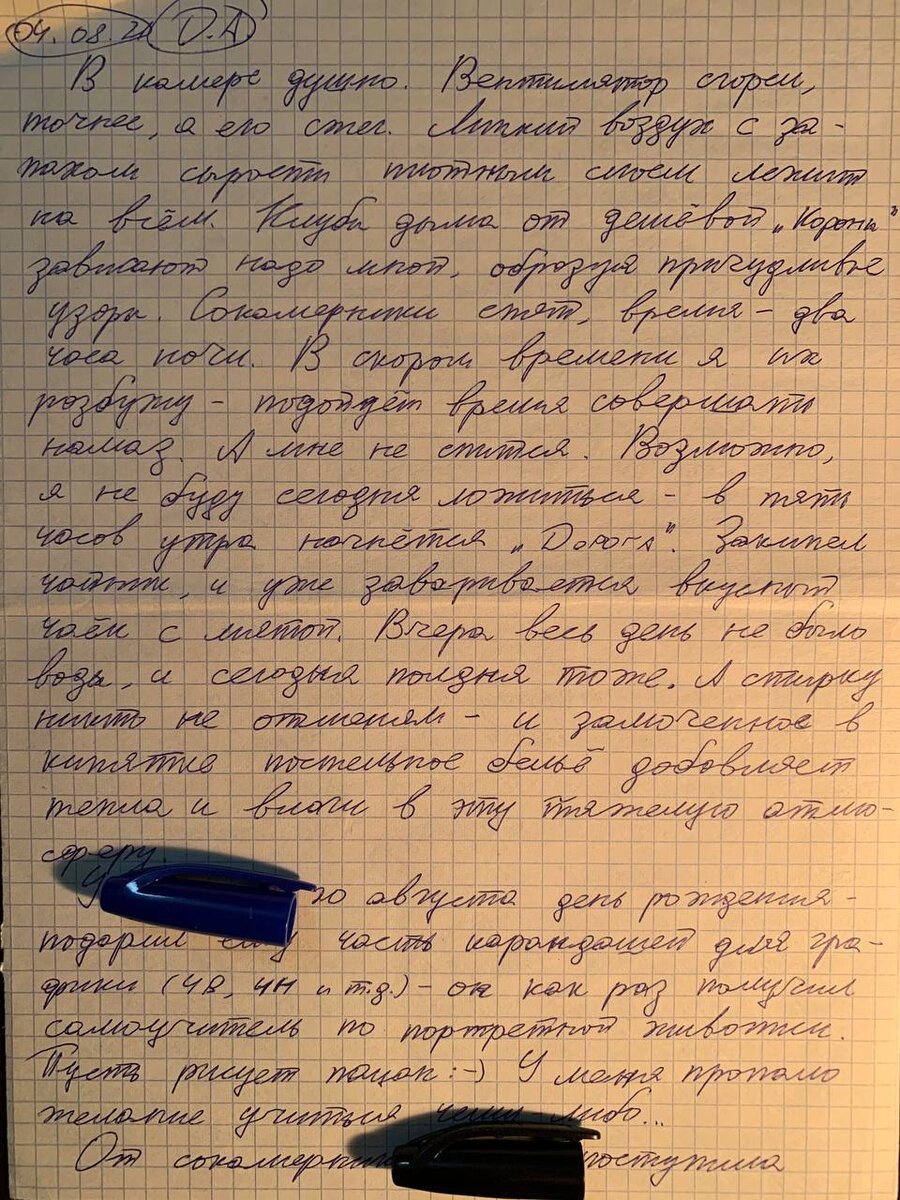 04.08.20 D.A
В камере душно. Вентилятор сгорел,
точнее, я его сжег. Липкий воздух с за-
пахом сырости плотным слоем лежит
на всём. Клубы дыма от дешёвой „Короны"
зависают надо мной, образуя причудливые
узоры. Сокамерники спят, время - два
часа ночи. В скором времени я их
разбужу - подойдёт время совершать
намаз. А мне не спится. Возможно,
я не буду сегодня ложиться - в пять
часов утра начнётся „Дорога". Закипел
чайник, и уже заваривается вкусный
чаёк с мятой. Вчера весь день не было
воды, и сегодня полдня тоже. А стирку
никто не отменял - и замоченное в
кипятке постельное бельё добовляет
тепла и влаги в эту тяжелую атмо-
сферу.
У августа день рождения -
подарил ему часть карандашей для гра-
фики (4B, 4H и т.д.) - он как раз получил
самоучитель по портретной живописи.
Пусть рисует пацан :-) У меня пропало
желание учиться чему-либо...
От поступила